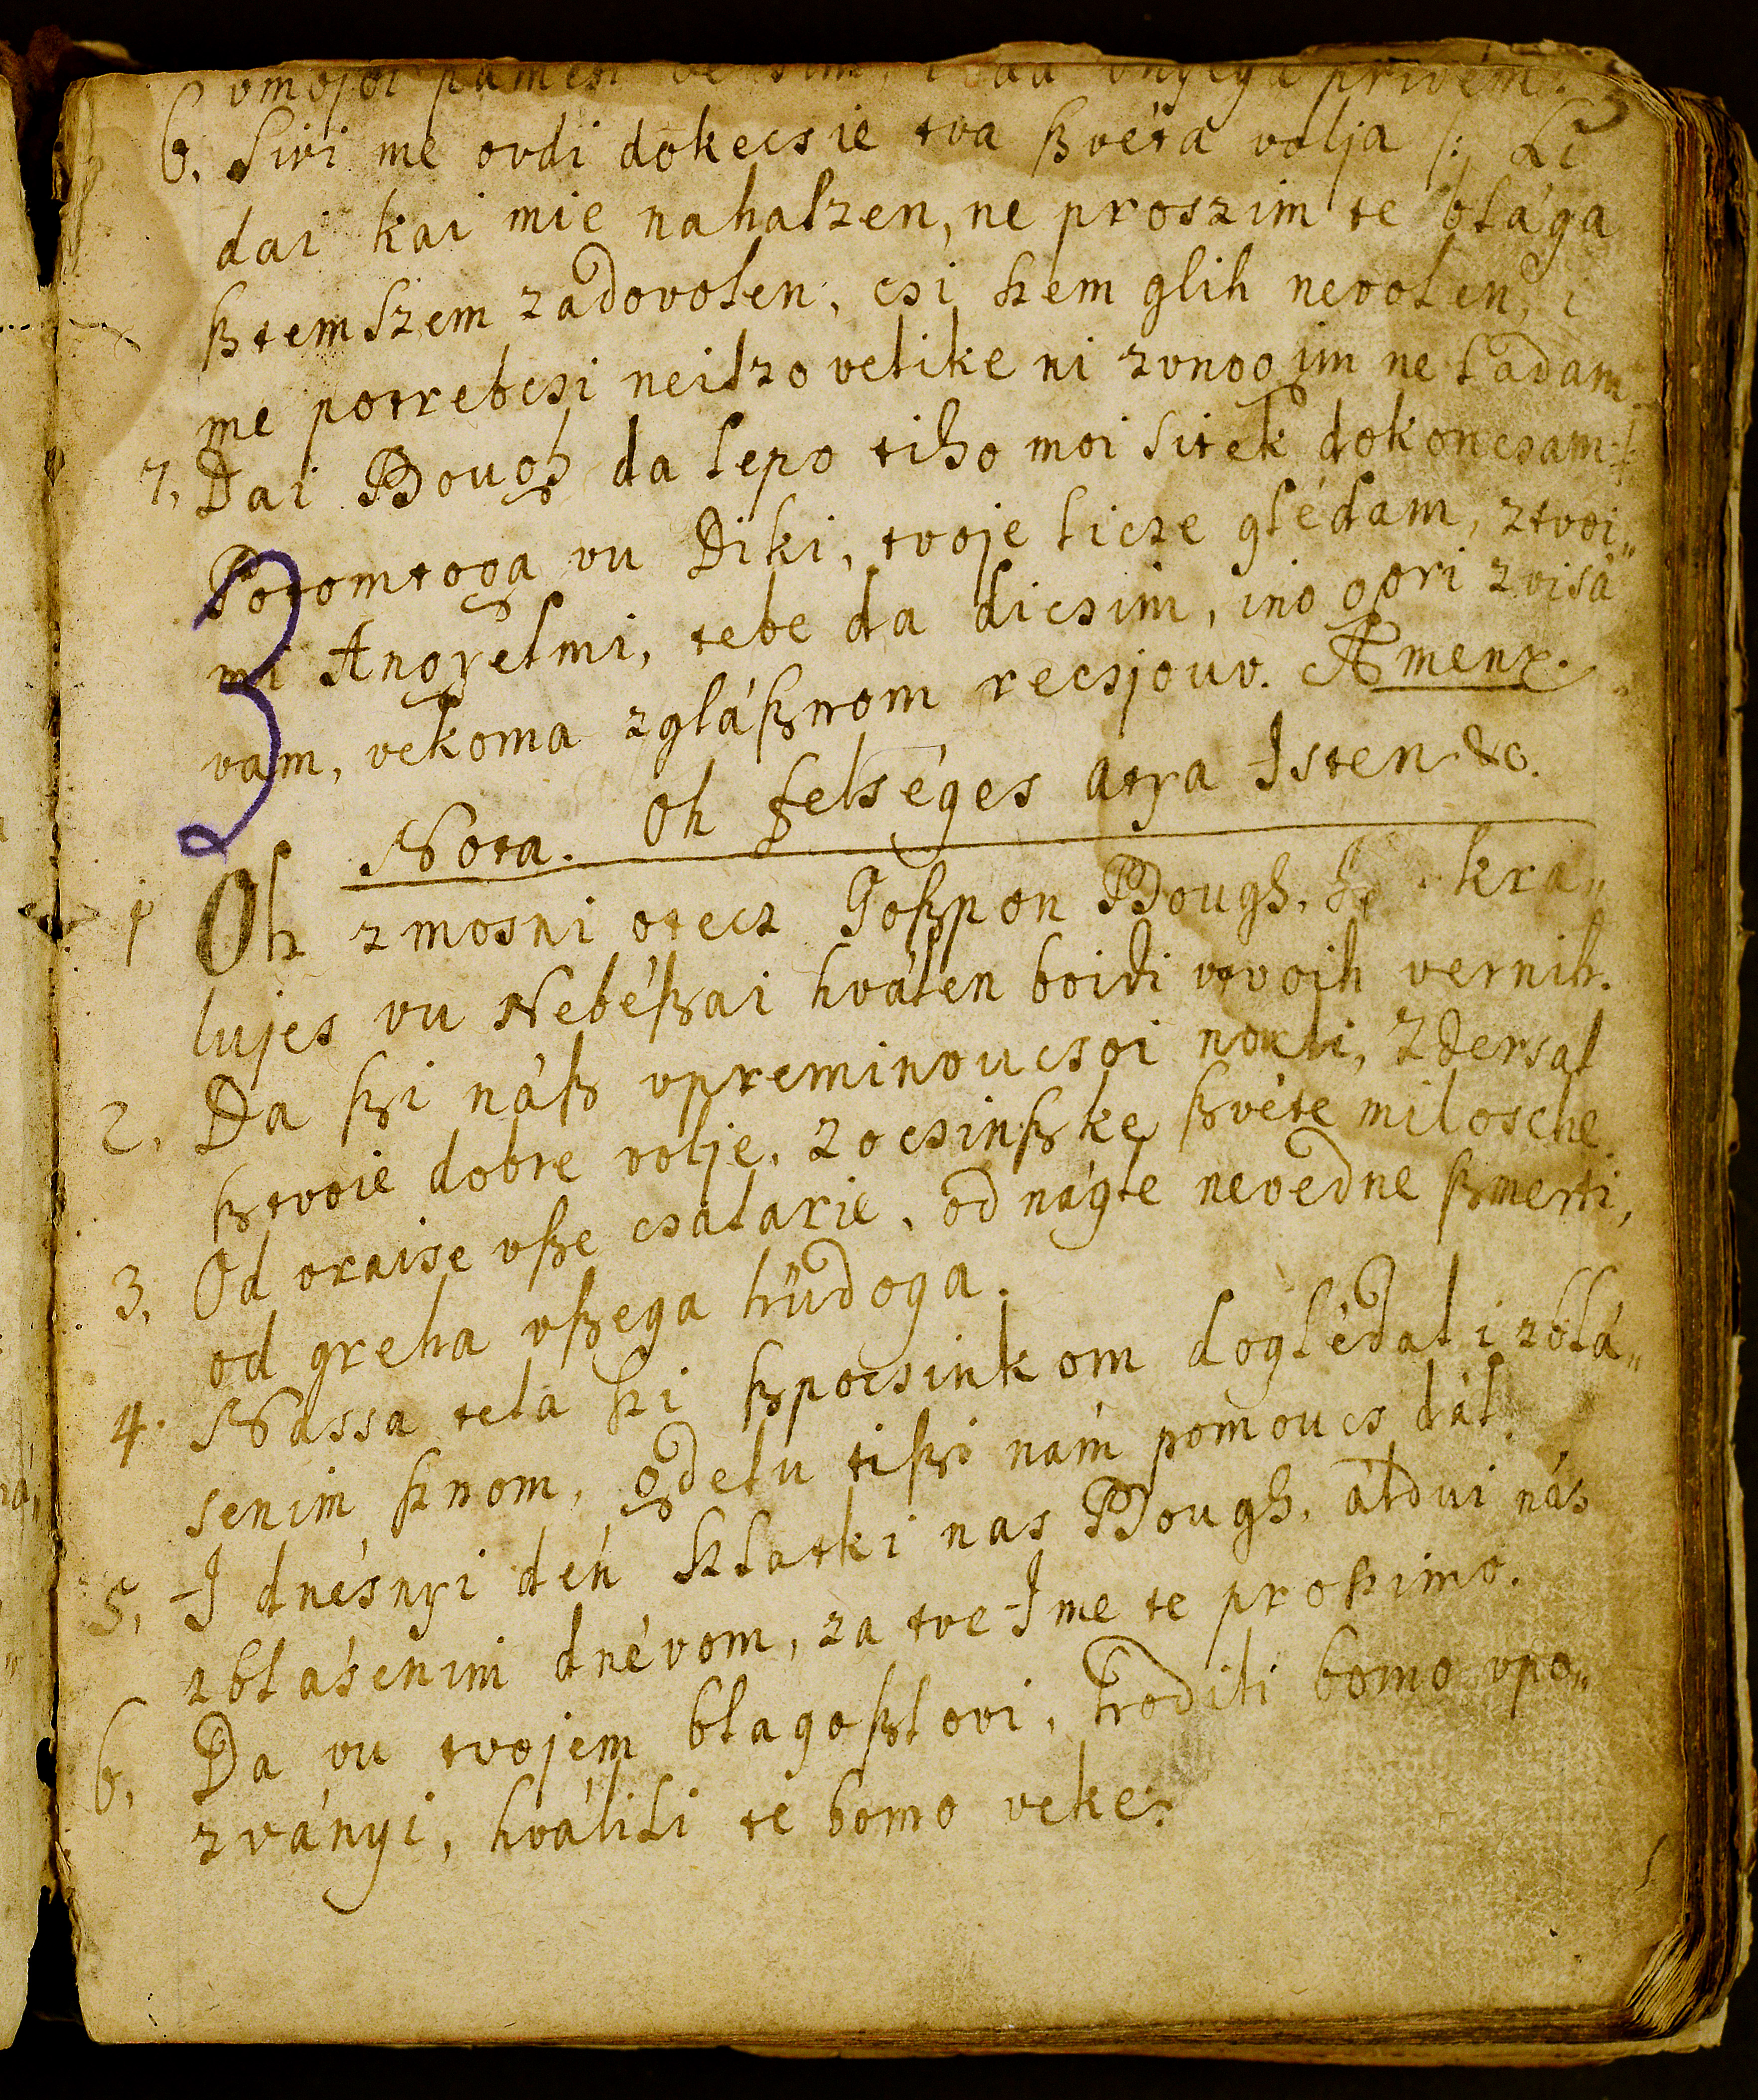 vmojoi pamen privém.
6. Sivi me ovdi dokecsie tva ßvéta volja /:/ Li
dai kai mie nahaszen, ne proszim te blága
ßtemszem zadovolen, csi szem glih nevolen, i
me potrebcsi neiszo velike ni zvnogim ne ladam.
7, Dai Bough da lepo tiho moi sitek dokoncsam /:/
Potomtoga vu Diki, tvoje licze glédam, ztvoi„
mi Angyelmi, tebe da dicsim, ino gori zvisá„
vam, vekoma zgláßnom recsjouv. Amen.
Nota. Oh felséges atya Isten &c.
1 Oh zmosni otecz Goßpon Bough, kra„
lujes vu Nebéßai hválen boidi vtvoih vernih.
2. Da ßi náß vpreminoucsoi nouti, Zdersal
ßtvoie dobre volje, zocsinßke ßvéte milosche
3. Od vraise vße csalarie, od nágle nevedne ßmerti,
od greha vßega hüdoga.
4. Nassa tela ßi ßpocsinkom doglédal i zblá„
senim ßnom, gdelu tißi nám pomoucs dál.
5. I dnésnyi dén szlatki nas Bough, áldui nás
zblásenim dnévom, za tve Ime te proßimo.
6. Da vu tvojem blagoßlovi, hodili bomo vpo„
zványi, hválili te bomo veke: